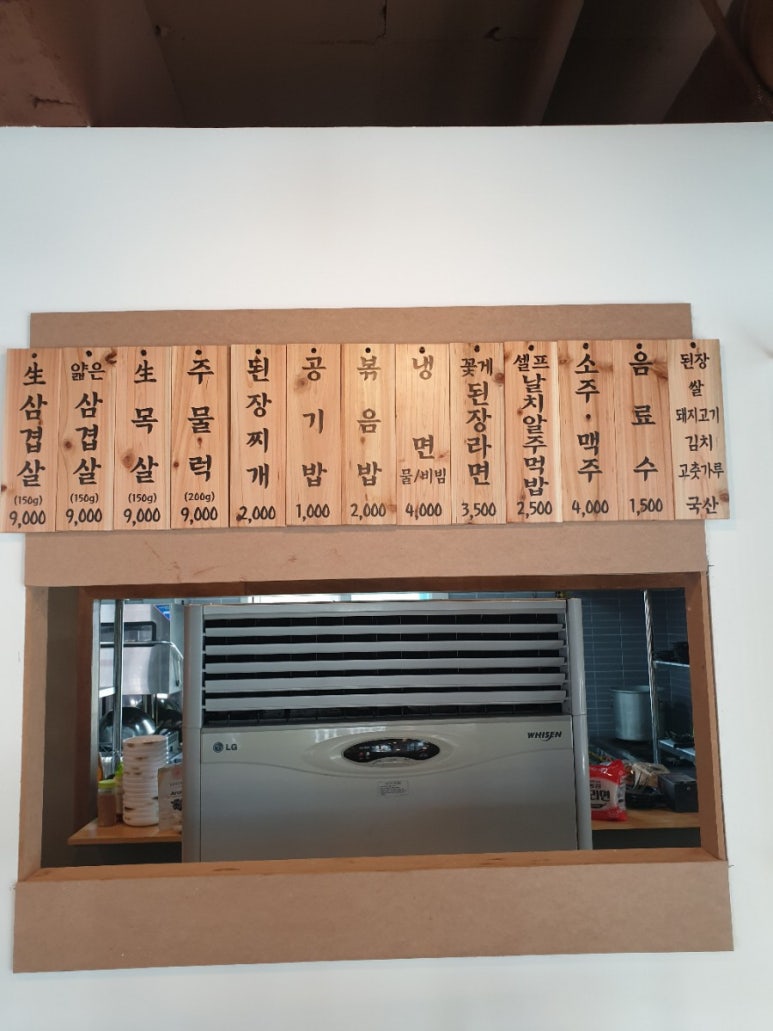 生삼겹살
(150g)
9,000
얇은삼겹살
(150g)
9,000
生목살
(150g)
9,000
주물럭
(200g)
9,000
된장찌개
2,000
공기밥
1,000
볶음밥
2,000
냉면
물/비빔
4,000
꽃게된장라면
3,500
셀프날치알주먹밥
2,500
소주·맥주
4,000
음료수
1,500
된장
쌀
돼지고기
김치
고춧가루
국산
LG
WHISEN